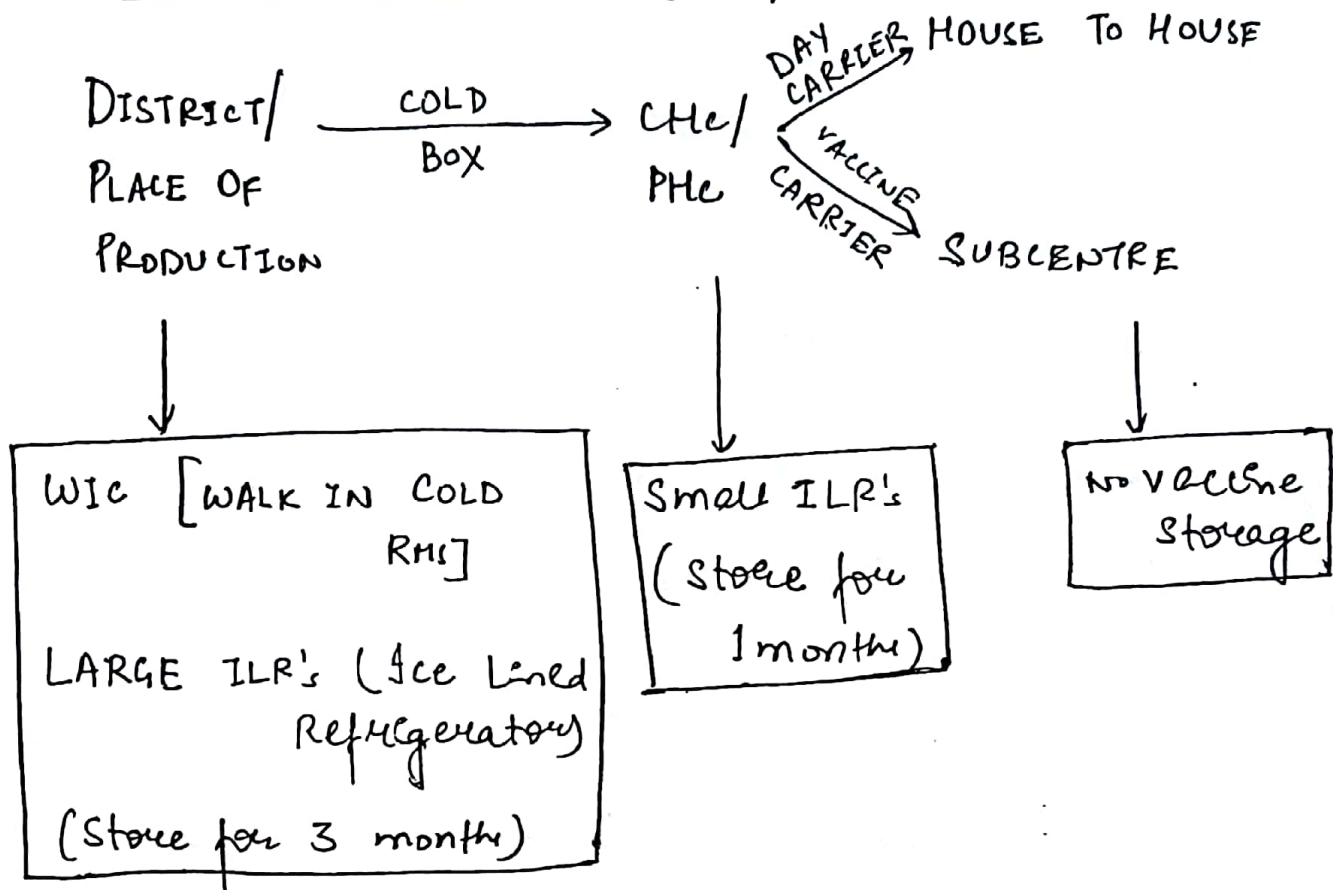 DISTRICT/
PLACE OF
PRODUCTION
COLD
BOX
CHC/
PHC
DAY
CARRIER
HOUSE TO HOUSE
VACCINE
CARRIER
SUBCENTRE
WIC [WALK IN COLD
RMS]
LARGE ILR's (Ice Lined
Refrigerators)
(Store for 3 months)
Small ILR's
(Store for
1 months)
No vaccine
storage